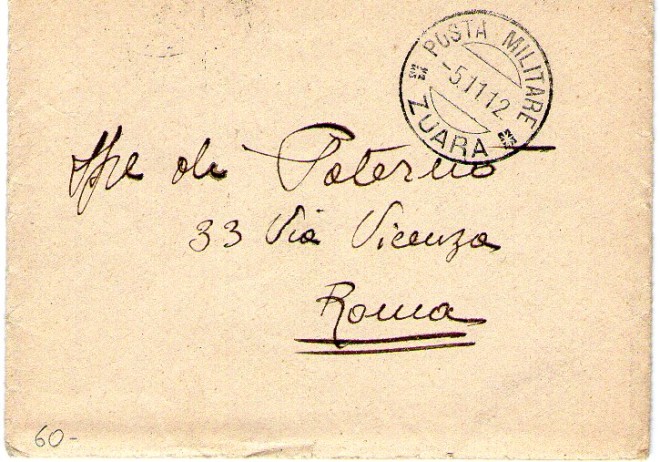 POSTA MILITARE
-5.11.12
ZUARA
di Paternò
33 Via Vicenza
Roma
60-